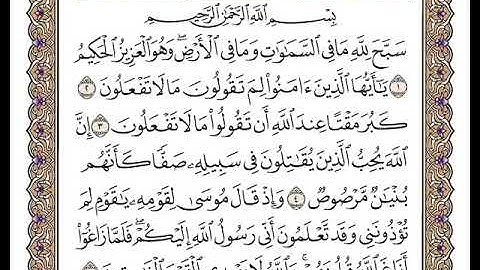 بِسْمِ ٱللَّهِ ٱلرَّحْمَٰنِ ٱلرَّحِيمِ
سَبَّحَ لِلَّهِ مَا فِى ٱلسَّمَٰوَٰتِ وَمَا فِى ٱلْأَرْضِ ۖ وَهُوَ ٱلْعَزِيزُ ٱلْحَكِيمُ
١ يَٰٓأَيُّهَا ٱلَّذِينَ ءَامَنُوا۟ لِمَ تَقُولُونَ مَا لَا تَفْعَلُونَ ٢
كَبُرَ مَقْتًا عِندَ ٱللَّهِ أَن تَقُولُوا۟ مَا لَا تَفْعَلُونَ ٣ إِنَّ
ٱللَّهَ يُحِبُّ ٱلَّذِينَ يُقَٰتِلُونَ فِى سَبِيلِهِۦ صَفًّا كَأَنَّهُم
بُنْيَٰنٌ مَّرْصُوصٌ ٤ وَإِذْ قَالَ مُوسَىٰ لِقَوْمِهِۦ يَٰقَوْمِ لِمَ
تُؤْذُونَنِى وَقَد تَّعْلَمُونَ أَنِّى رَسُولُ ٱللَّهِ إِلَيْكُمْ ۖ فَلَمَّا زَاغُوٓا۟
أَزَاغَ ٱللَّهُ قُلُوبَهُمْ ۚ وَٱللَّهُ لَا يَهْدِى ٱلْقَوْمَ ٱلْفَٰسِقِينَ